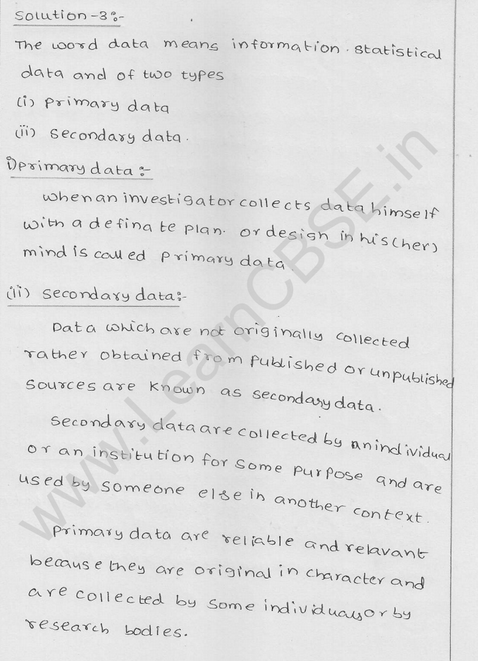 Solution-3:-
The word data means information. Statistical
data and of two types
(i) Primary data
(ii) Secondary data.
i) Primary data:-
When an investigator collects data himself
with a definate plan. or design in his (her)
mind is called primary data
(ii) Secondary data:-
Data which are not originally collected
rather obtained from published or unpublished
sources are known as secondary data.
Secondary data are collected by an individual
or an institution for some purpose and are
used by someone else in another context.
primary data are reliable and relavant
because they are original in character and
are collected by some individuals or by
research bodies.
www.LearnCBSE.in